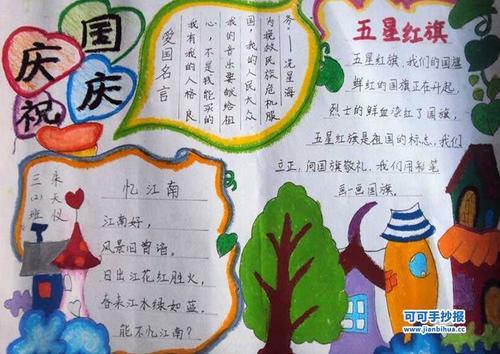 庆祝
国庆
爱国名言
我有我的人格、良
心，不是我能买的
我的音乐要献给祖
国，我的人民大众
为挽救民族危机服
务。——冼星海
五星红旗
五星红旗，我们的国旗
鲜红的国旗正在升起，
烈士的鲜血染红了国旗，
五星红旗是祖国的标志，我们
立正，向国旗敬礼，我们用彩笔
画一画国旗。
三(2)班
天仪
忆江南
江南好，
风景旧曾谙。
日出江花红胜火，
春来江水绿如蓝。
能不忆江南？
可可手抄报
www.jianbihua.cc